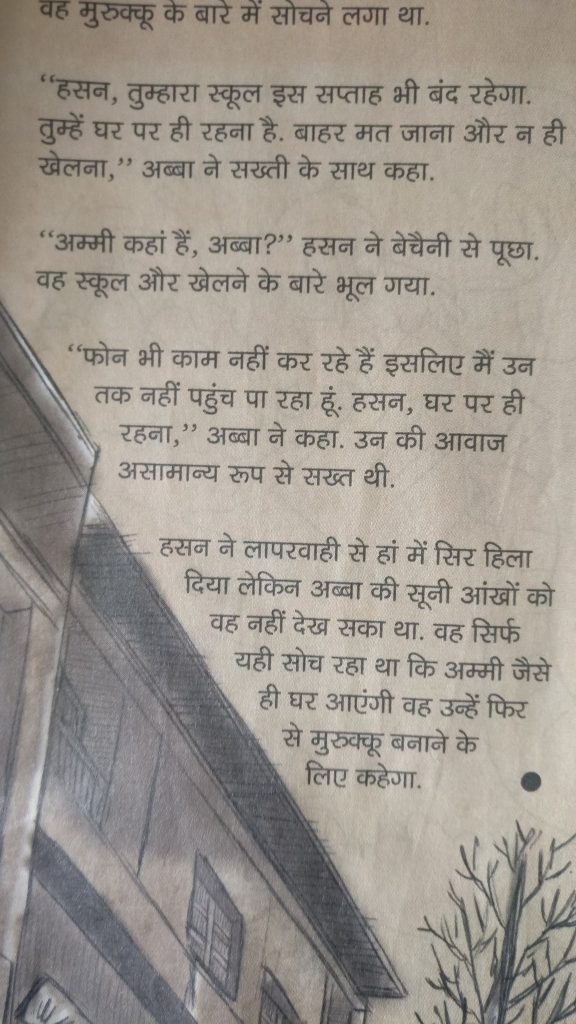 वह मुरुक्कू के बारे में सोचने लगा था.
“हसन, तुम्हारा स्कूल इस सप्ताह भी बंद रहेगा.
तुम्हें घर पर ही रहना है. बाहर मत जाना और न ही
खेलना,” अब्बा ने सख्ती के साथ कहा.
“अम्मी कहां हैं, अब्बा?” हसन ने बेचैनी से पूछा.
वह स्कूल और खेलने के बारे भूल गया.
“फोन भी काम नहीं कर रहे हैं इसलिए मैं उन
तक नहीं पहुंच पा रहा हूं. हसन, घर पर ही
रहना,” अब्बा ने कहा. उन की आवाज
असामान्य रूप से सख्त थी.
हसन ने लापरवाही से हां में सिर हिला
दिया लेकिन अब्बा की सूनी आंखों को
वह नहीं देख सका था. वह सिर्फ
यही सोच रहा था कि अम्मी जैसे
ही घर आएंगी वह उन्हें फिर
से मुरुक्कू बनाने के
लिए कहेगा.